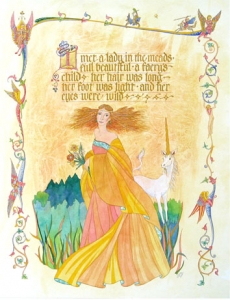 I met a lady in the meads
full beautiful · a faery's
child · her hair was long
her foot was light · and her
eyes were wild